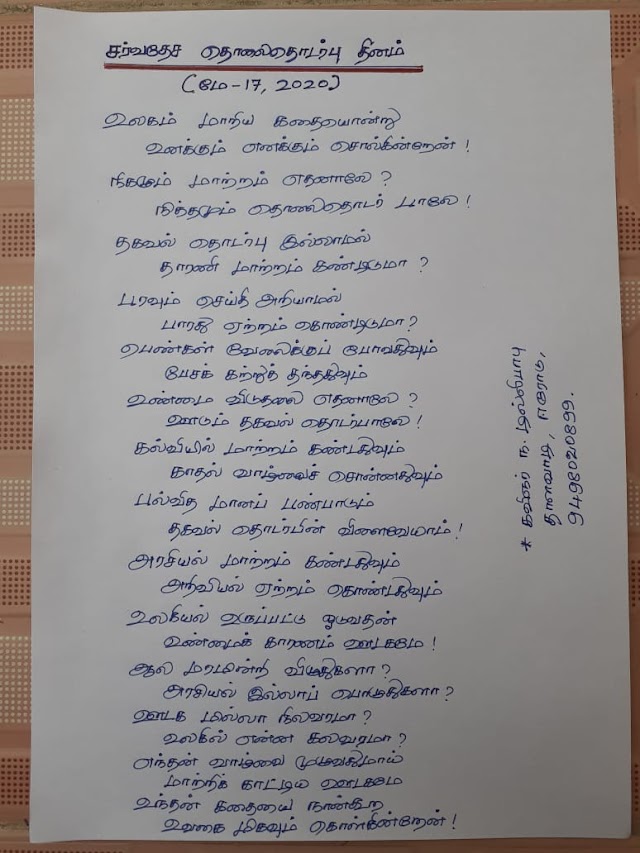 சர்வதேச தொலைதொடர்பு தினம்
(மே-17, 2020)
உலகம் மாறிய கதையொன்று
உனக்கும் எனக்கும் சொல்கின்றேன் !
நிகழும் மாற்றம் எதனாலே ?
நித்தமும் தொலைதொடர் பாலே !
தகவல் தொடர்பு இல்லாமல்
தாரணி மாற்றம் கண்டிடுமா ?
பரவும் செய்தி அறியாமல்
பாரது ஏற்றம் கொண்டிடுமா?
பெண்கள் வேலைக்குப் போவதுவும்
பேசக் கற்றுத் தந்ததுவும்
உண்மை விடுதலை எதனாலே ?
ஊடும் தகவல் தொடர்பாலே !
கல்வியில் மாற்றம் கண்டதுவும்
காதல் வாழ்வைச் சொன்னதுவும்
பல்வித மானப் பண்பாடும்
தகவல் தொடர்பின் விளைவேயாம் !
அரசியல் மாற்றம் கண்டதுவும்
அறிவியல் ஏற்றம் கொண்டதுவும்
உலகியல் உருப்பட்டு ஓடுவதன்
உண்மைக் காரணம் ஊடகமே !
ஆல மரமின்றி விழுதுகளா ?
அரசியல் இல்லாப் பொழுதுகளா ?
ஊடக மில்லா நிலவரமா ?
உலகில் என்ன கலவரமா ?
எந்தன் வாழ்வை முழுவதுமாய்
மாற்றிக் காட்டிய ஊடகமே
உந்தன் கதையை நான்கூற
உவகை மிகவும் கொள்கின்றேன் !
* கவிஞர் ந. டில்லிபாபு
தாளவாடி, ஈரோடு,
9498020899.